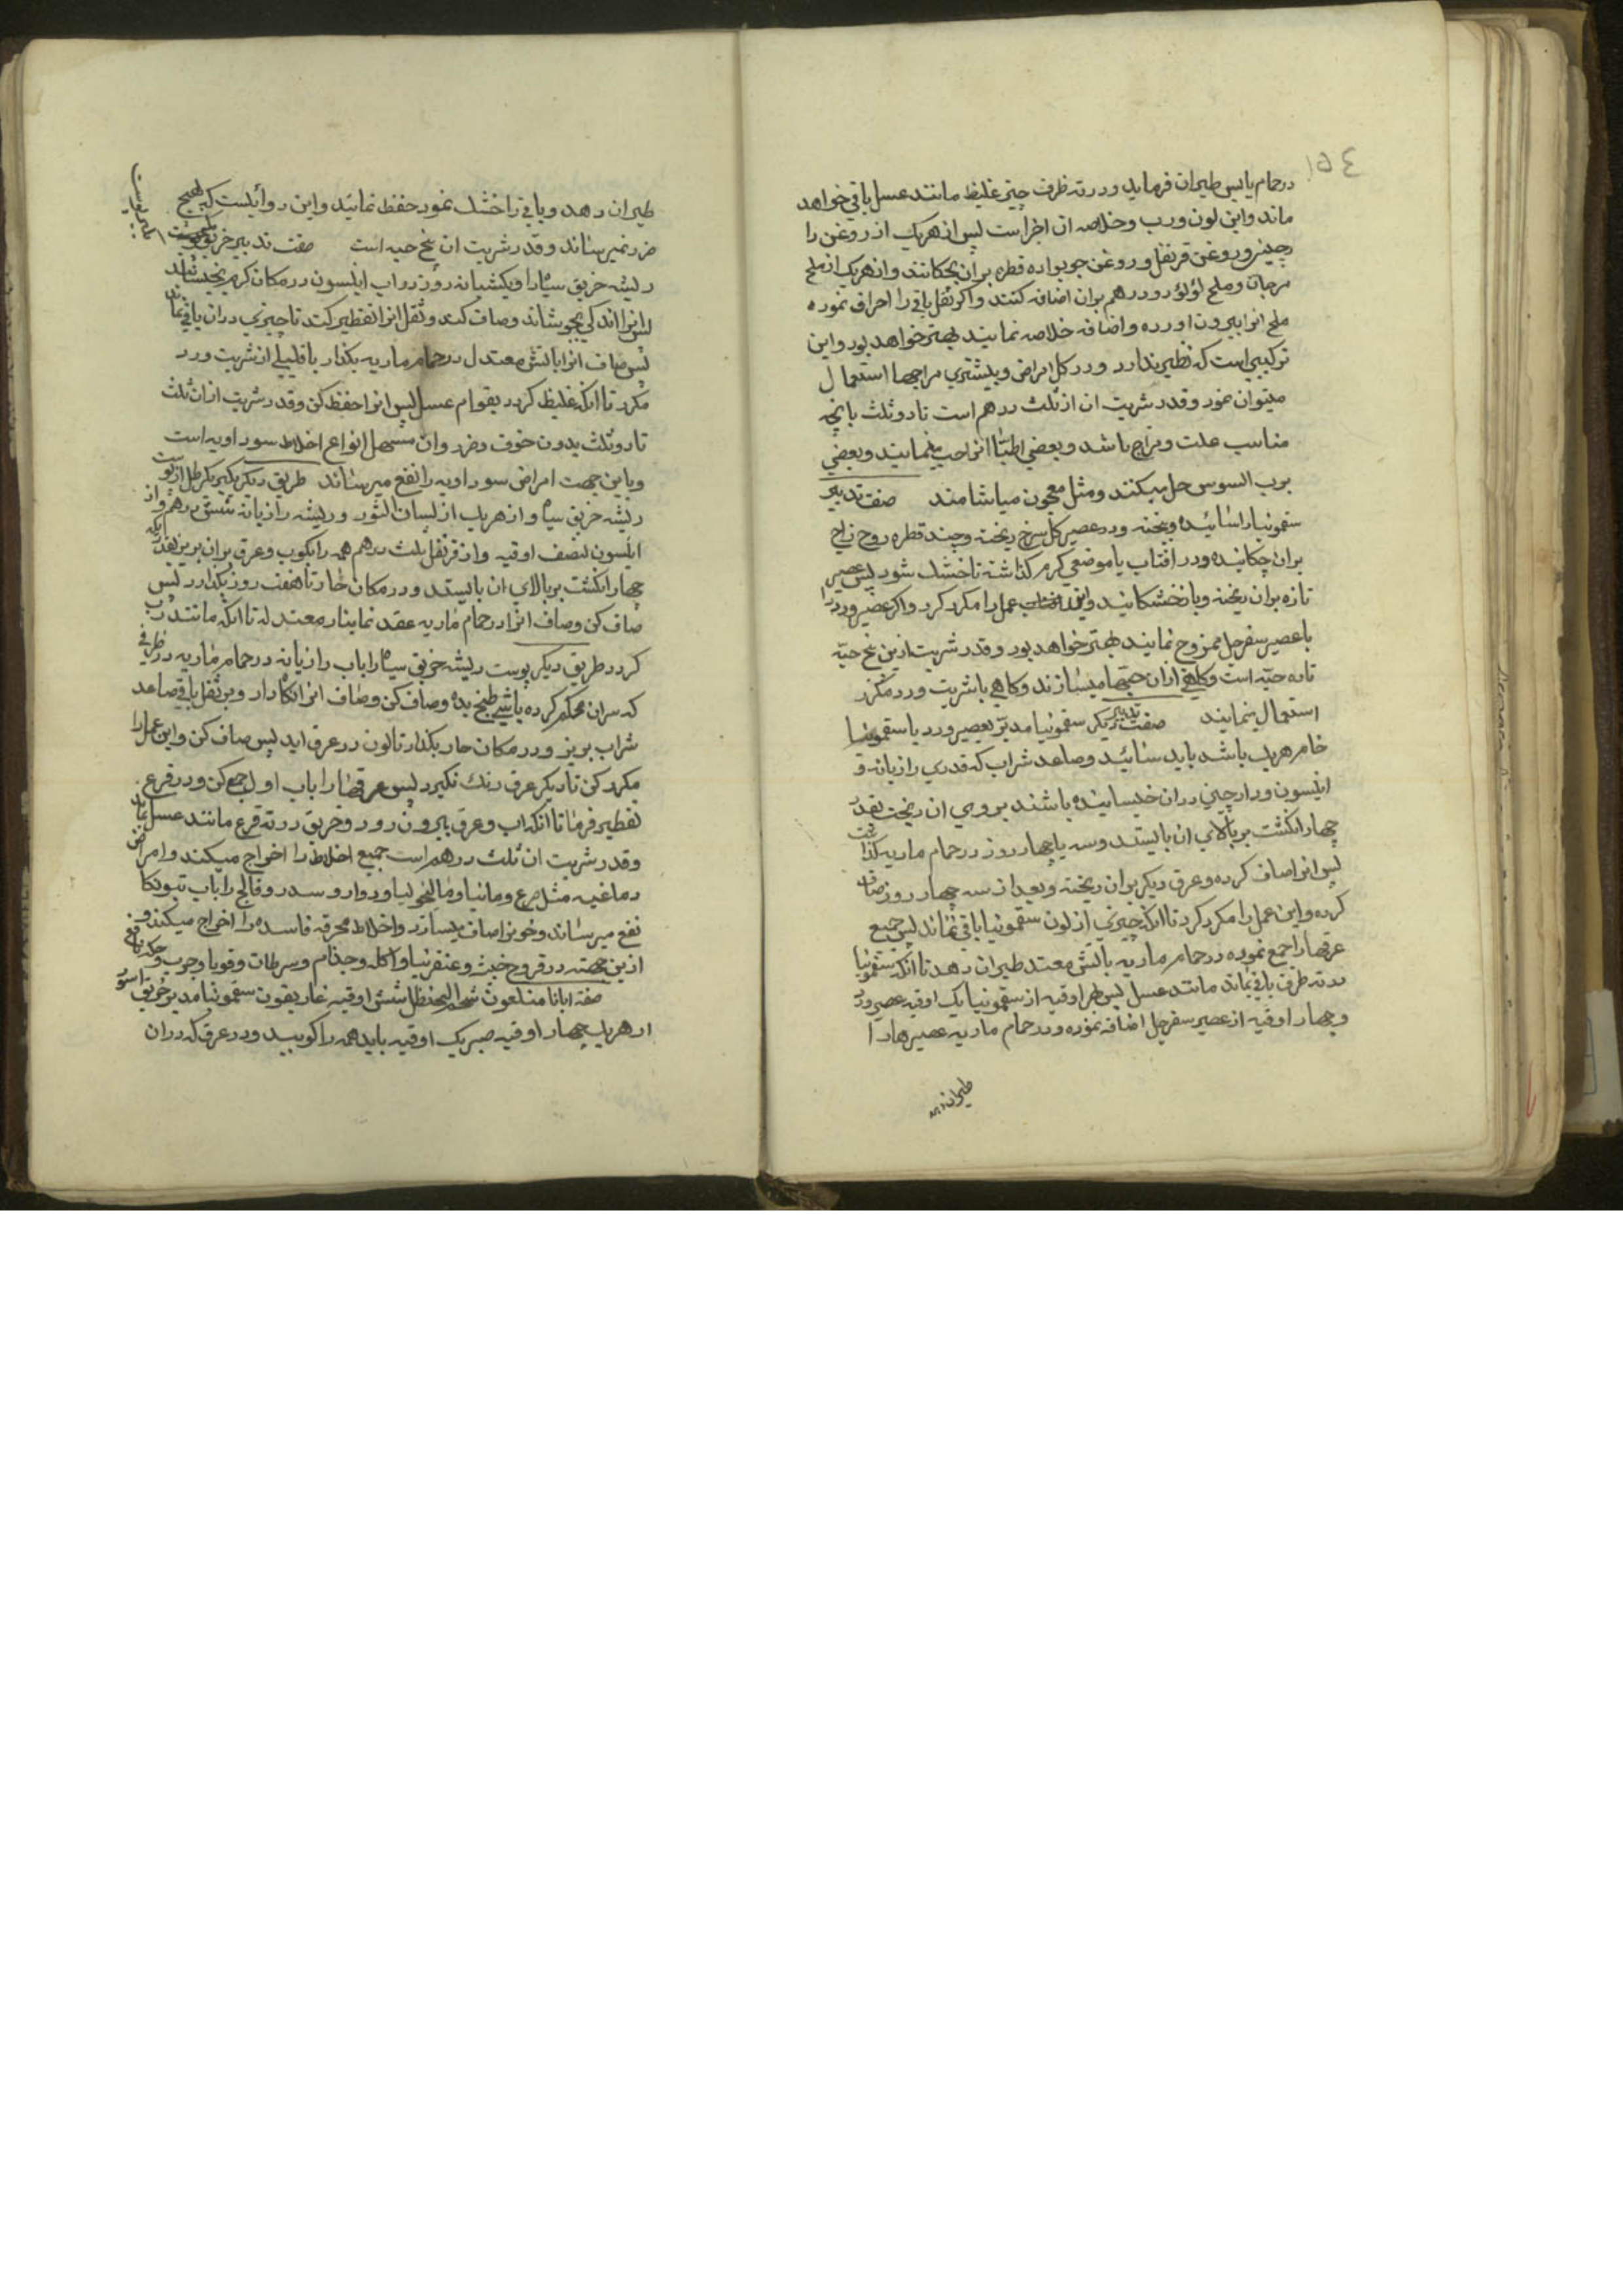 ١٥٤
در حمام یابس طیران فرماید و در ته ظرف چیز غلیظ مانند عسل باقی خواهد
ماند و این لون و رب و خلاصه ان اجزاست پس از هریک از روغن دا
رچینی و روغن قرنفل و روغن جوبوا ده قطره بران بچکانند و از هریک از ملح
مرجان و ملح لؤلؤ دو درهم بران اضافه کنند و اکر ثفل باقی را احراق نموده
ملح انرا بیرون اورده و اضافه خلاصه نمایند بهتر خواهد بود و این
ترکیبی است که نظیر ندارد و در کل امراض و بیشتری مزاجها استعمال
میتوان نمود و قدر شربت ان از ثلث درهم است تا دو ثلث بانچه
مناسب علت و مزاج باشد و بعضی اطبا انرا حب مینمایند و بعضی
برب السوس حل میکنند و مثل معجون میاشامند صفت تدبیر
سقمونیا را سائیده و بیخته و در عصیر کل سرخ ریخته و چند قطره روح زاج
بران چکانیده و در افتاب یا موضعی کرم کذاشته تا خشک شود پس عصیر
تازه بران ریخته و باز خشکانید و این عمل را مکرر کرد و اکر عصیر ورد را
با عصیر سفرجل ممزوج نمایند بهتر خواهد بود و قدر شربت ازین پنج حبه
تا ده حبه است و کاهی ازان حبها میسازند و کاهی با شربت ورد مکرر
استعمال مینمایند صفت تدبیر دیکر سقمونیا مدبر بعصیر ورد یا سقمونیا
خام هریک باشد باید سائید و صاعد شراب که قدری رازیانه و
انیسون و دارچینی دران خیسانیده باشند بروی ان ریخت بقدر
چهار انکشت بر بالای ان بایستد و سه یا چهار روز در حمام ماریه کذاشت
پس انرا صاف کرده و عرق دیکر بران ریخته و بعد از سه چهار روز صاف
کرده و این عمل را مکرر کرد تا انکه چیزی از لون سقمونیا باقی نماند پس جمیع
عرقها را جمع نموده در حمام ماریه باتش معتدل طیران دهد تا انکه سقمونیا
در ته ظرف باقی بماند مانند عسل پس هر اوقیه از سقمونیا یک اوقیه عصیر ورد
و چهار اوقیه از عصیر سفرجل اضافه نموده و در حمام ماریه عصیرها را
طیران دهد
طیران دهد و باقی را خشک نموده حفظ نمائید و این دوائیست که بهیچ
ضرر نمیرساند و قدر شربت ان پنج حبه است صفت تدبیر خربق
ریشه خربق سیاه را و یکشبانه روز در اب انیسون در مکان کرم بخیسانند
پس انرا اندکی بجوشاند و صاف کند و ثفل انرا تقطیر کند تا چیزی دران باقی نماند
پس صاف انرا باتش معتدل در حمام ماریه بکذار با قلیلی از شربت ورد
مکرر تا انکه غلیظ کردد بقوام عسل پس انرا حفظ کن و قدر شربت ازان ثلث
تا دو ثلث بدون خوف و ضرر و ان مسهل انواع اخلاط سوداویه است
و باین جهت امراض سوداویه را نفع میرساند طریق دیکر بکیر یکرطل از پوست
ریشه خربق سیاه و از هریک از لسان الثور و ریشه رازیانه شش درهم و از
انیسون نصف اوقیه و از قرنفل ثلث درهم همه را بکوب و عرق بران بریز بقدریکه
چهار انکشت بر بالای ان بایستد و در مکان حار تا هفت روز بکذارد پس
صاف کن و صاف انرا در حمام ماریه عقد نما بنار معتدله تا انکه مانند رب
کردد طریق دیکر پوست ریشه خربق سیاه را باب رازیانه در حمام ماریه در ظرفی
که سران محکم کرده باشی طبخ بده و صاف کن و صاف انرا نکاه دار و بر ثفل باقی صاعد
شراب بریز و در مکان حار بکذار تا لون در عرق اید پس صاف کن و این عمل را
مکرر کن تا دیکر عرق رنک نکیرد پس عرقها را باب اول جمع کن و در قرع
تقطیر فرما تا انکه اب و عرق بیرون رود و خربق در ته قرع مانند عسل بماند
و قدر شربت ان ثلث درهم است جمیع اخلاط را اخراج میکند و امراض
دماغیه مثل صرع و مانیا و مالیخولیا و دوار و سدر و فالج را باب
نفع میرساند و خونرا صاف میسازد و اخلاط محرقه فاسده را اخراج میکند و
ازین جهته در قروح خبیث و عنغرنیا و اکله و جذام و سرطان و قوبا و جرب و حکه نافع
صفة شحم الحنظل شش اوقیه غاریقون سقمونیا مدبر خربق اسود
از هریک چهار اوقیه صبر یک اوقیه باید همه را کوبید و در عرق که دران